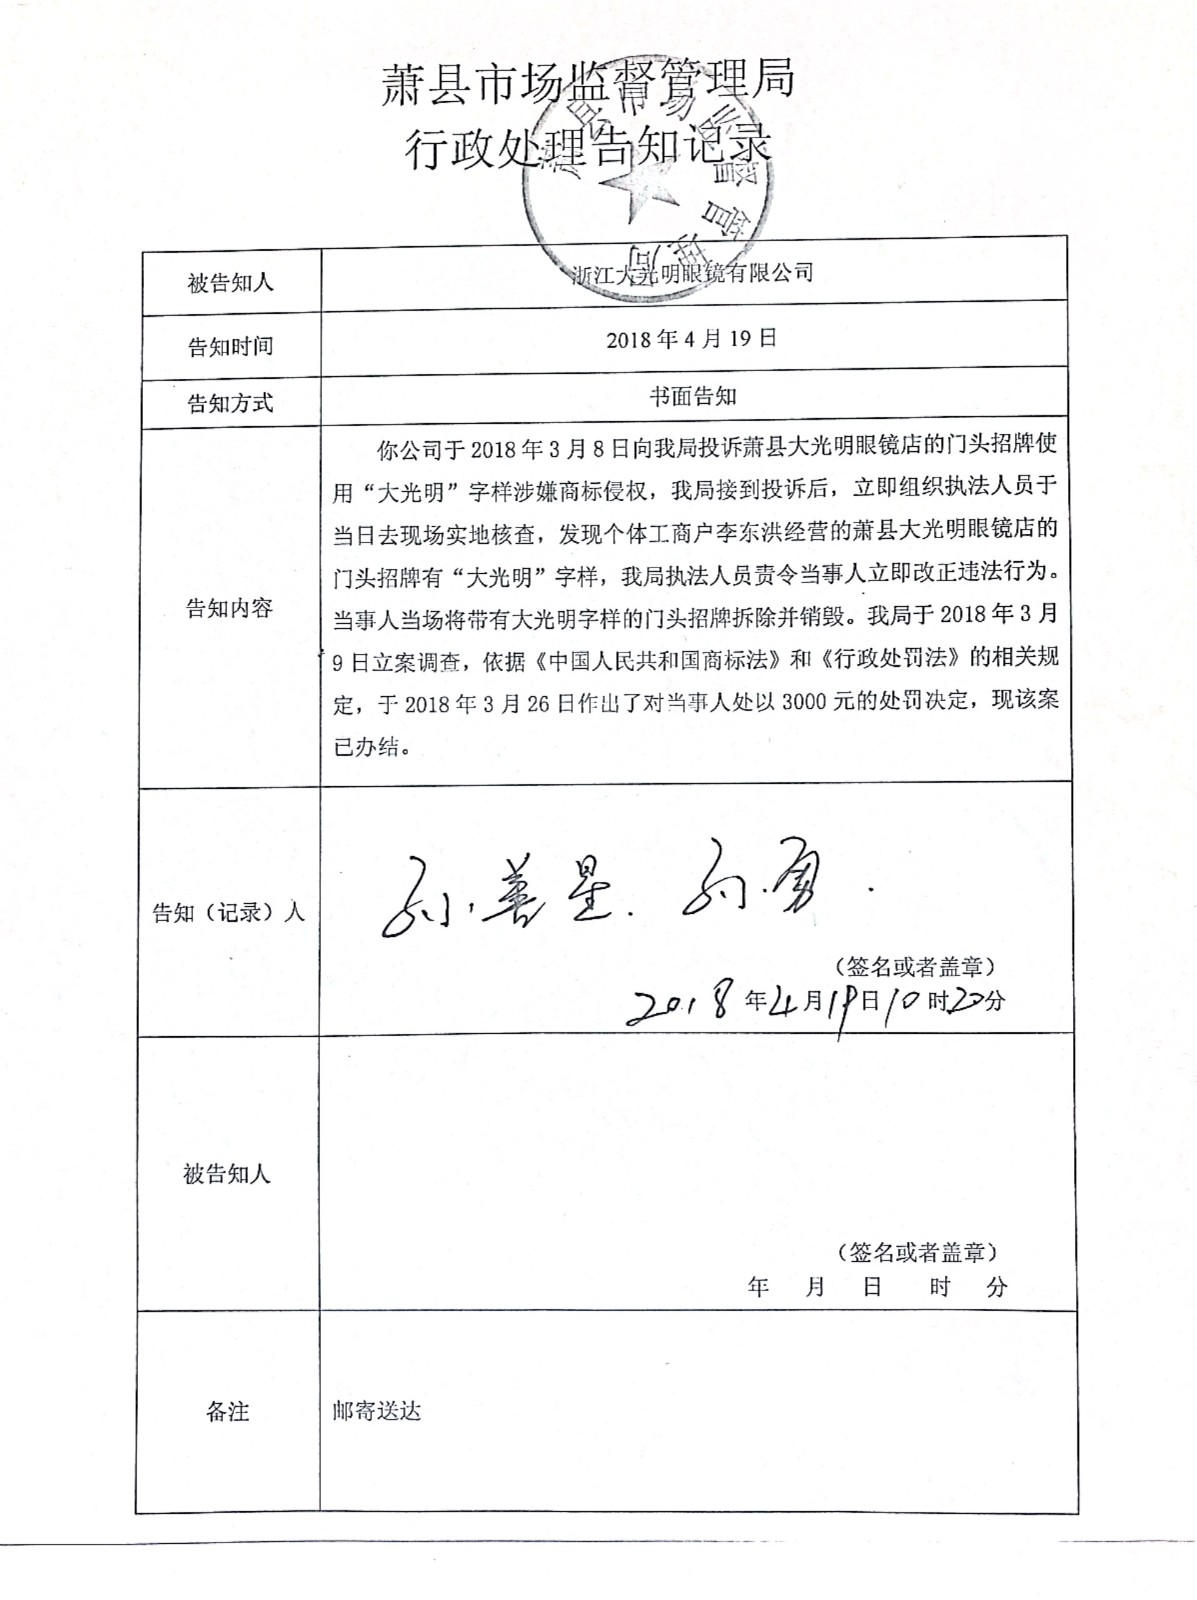 萧县市场监督管理局
行政处理告知记录
萧县市场监督管理局
被告知人
浙江大光明眼镜有限公司
告知时间
2018年4月19日
告知方式
书面告知
告知内容
你公司于2018年3月8日向我局投诉萧县大光明眼镜店的门头招牌使
用“大光明”字样涉嫌商标侵权，我局接到投诉后，立即组织执法人员于
当日去现场实地核查，发现个体工商户李东洪经营的萧县大光明眼镜店的
门头招牌有“大光明”字样，我局执法人员责令当事人立即改正违法行为。
当事人当场将带有大光明字样的门头招牌拆除并销毁。我局于2018年3月
9日立案调查，依据《中国人民共和国商标法》和《行政处罚法》的相关规
定，于2018年3月26日作出了对当事人处以3000元的处罚决定，现该案
已办结。
告知（记录）人
孙善星. 孙勇.
（签名或者盖章）
2018年4月19日10时20分
被告知人
（签名或者盖章）
年 月 日 时 分
备注
邮寄送达